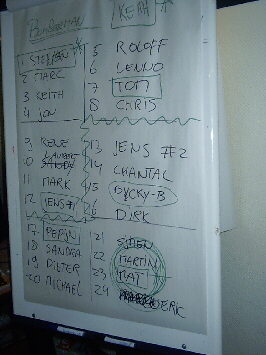 KEITH
1 STEPHAN
2 MARC
3 KEITH
4 JON
5 ROLOFF
6 LENNO
7 TOM
8 CHRIS
9 RENE
10 LAURENT
11 MARK
12 JENS #1
13 JENS #2
14 CHANTAL
15 DYCKY-B
16 DIRK
17 PEPIJN
18 SANDRA
19 DIETER
20 MICHAEL
21
22 MARTIN
23 MAT
24 ERIC